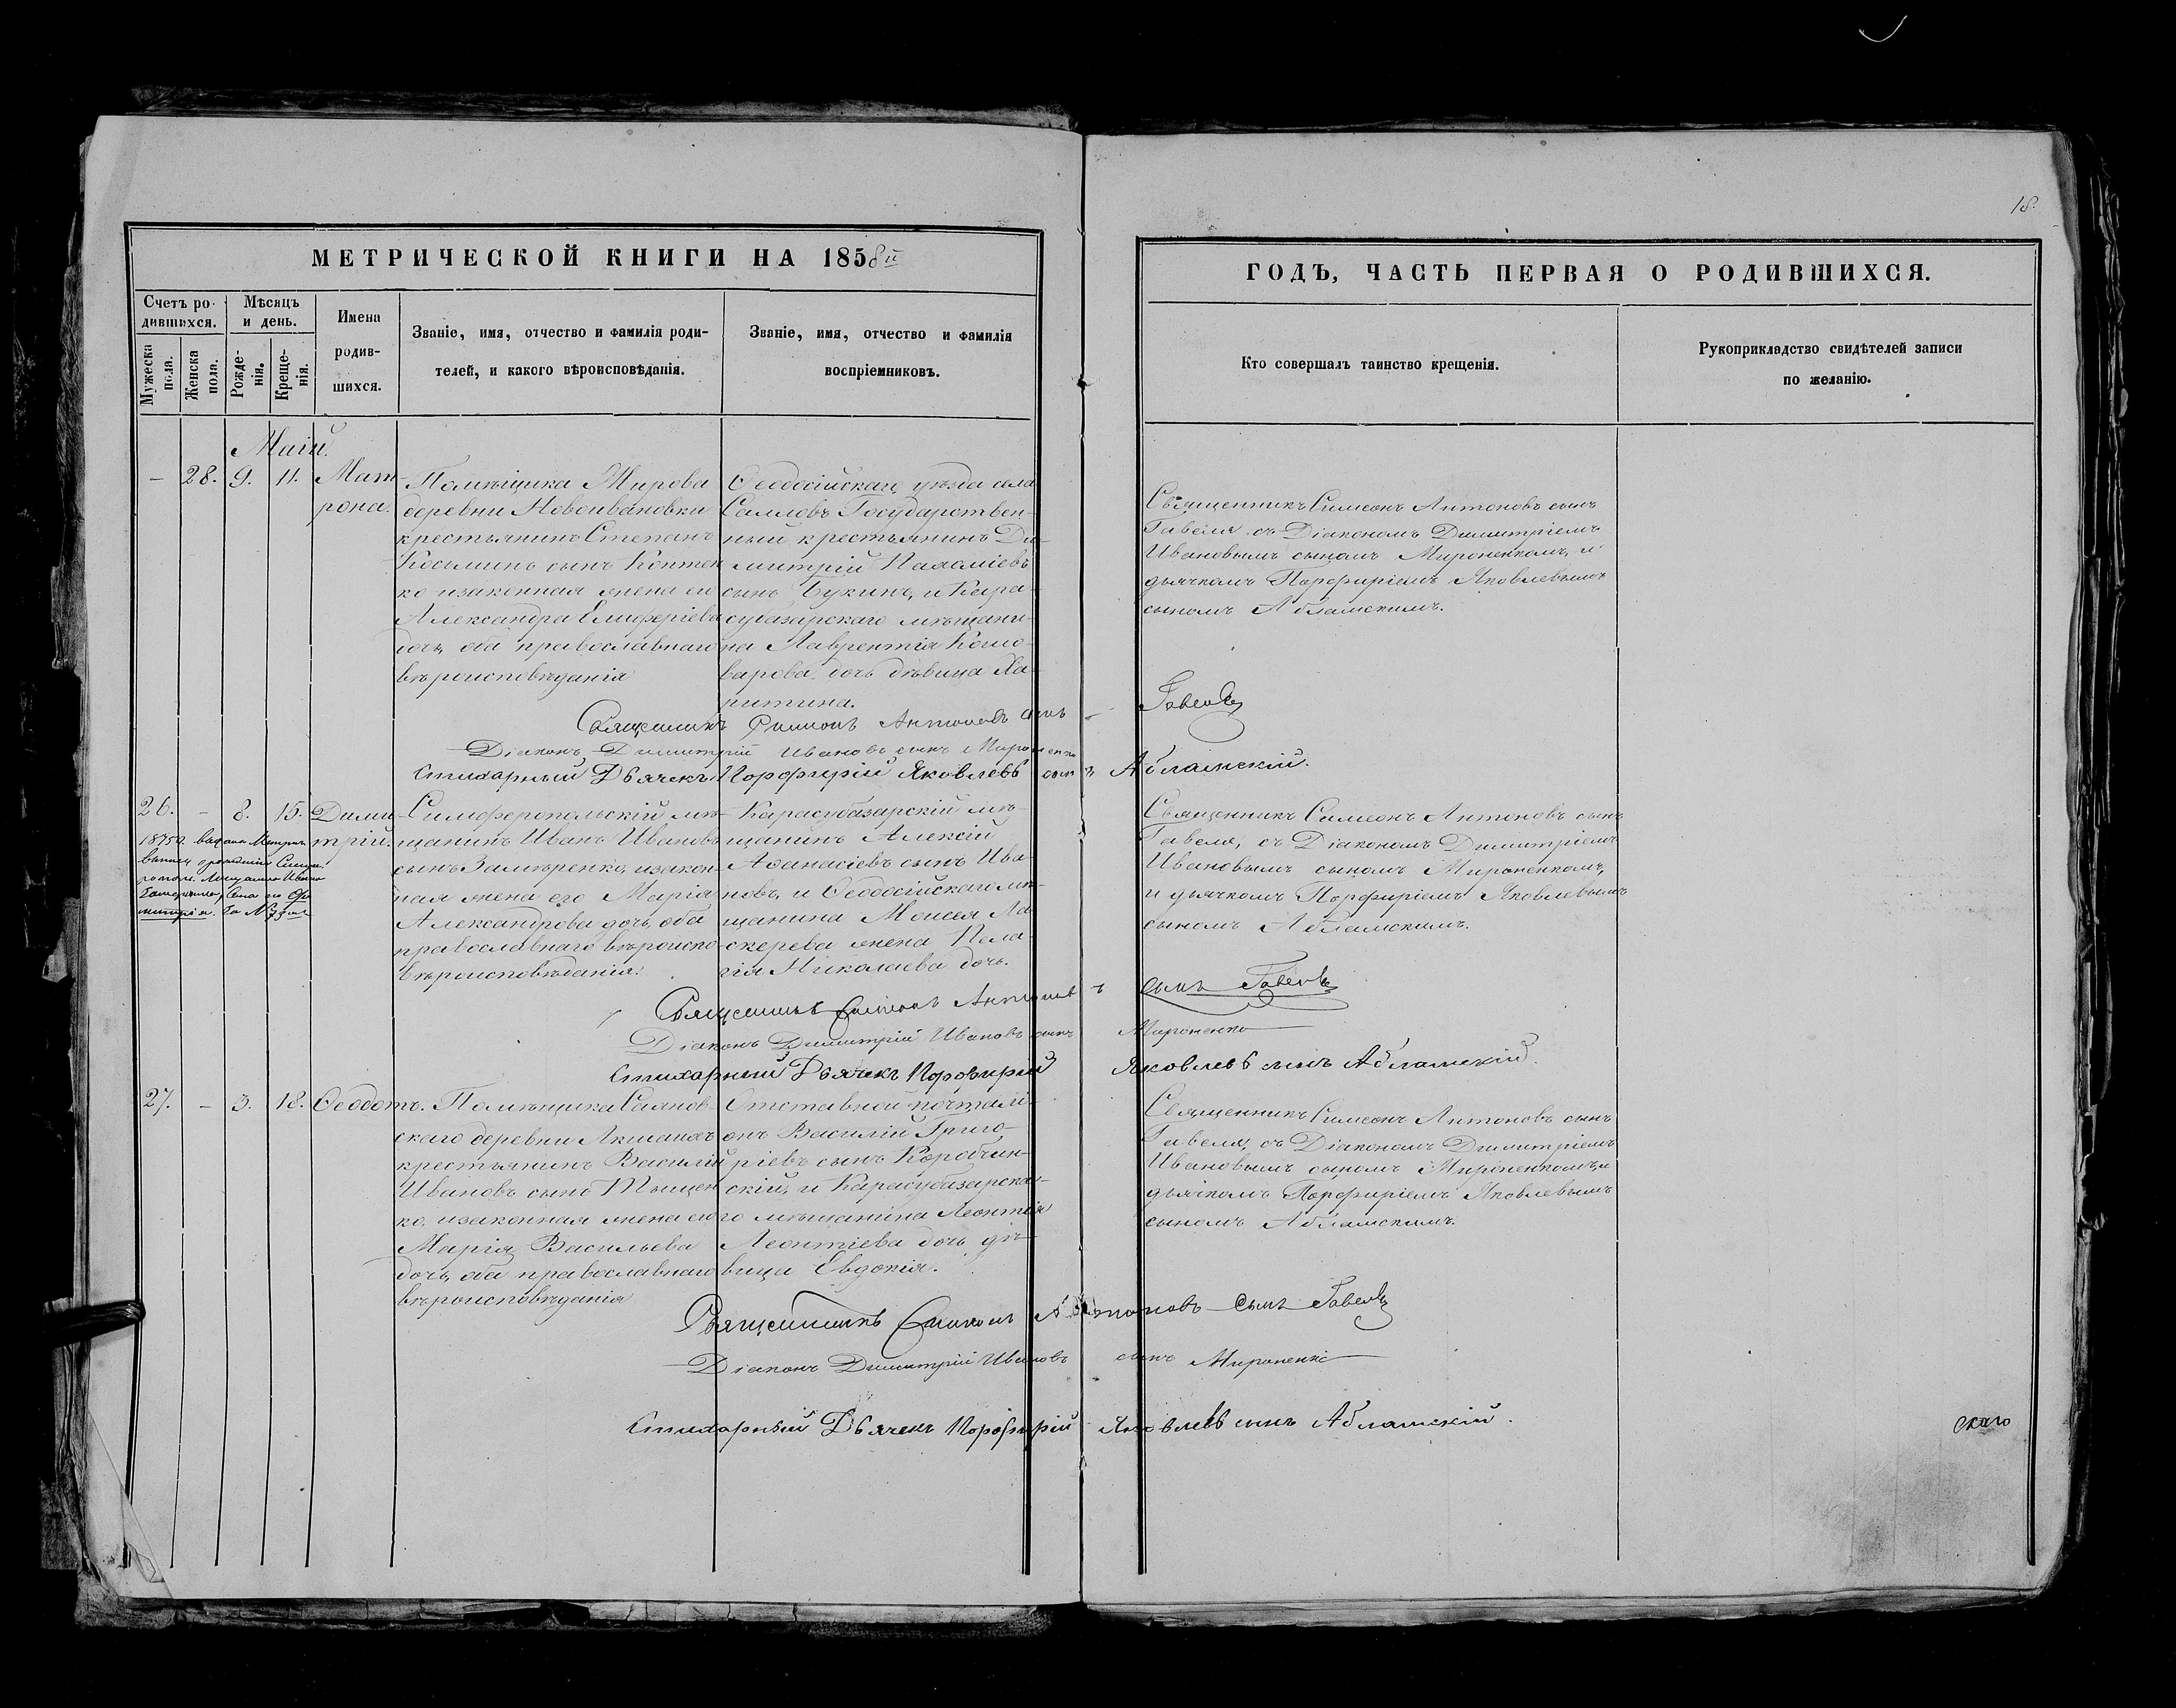 18.
МЕТРИЧЕСКОЙ КНИГИ НА 1858й
ГОДЪ, ЧАСТЬ ПЕРВАЯ О РОДИВШИХСЯ.
Счетъ ро-
дившихся.
Мужеска
пола.
Женска
пола.
Мѣсяцъ
и день.
Рожде-
нія.
Креще-
нія.
Имена
родив-
шихся.
Званіе, имя, отчество и фамилія роди-
телей, и какого вѣроисповѣданія.
Званіе, имя, отчество и фамилія
воспріемниковъ.
Кто совершалъ таинство крещенія.
Рукоприкладство свидѣтелей записи
по желанію.
Маій.
— 28. 9. 11.
Мат
рона.
Помѣщика Жирова
деревни Новоивановки
крестьянинъ Степанъ
Косминъ сынъ Коптен
ко изаконная жена его
Александра Елиферіева
дочь, оба православнаго
вѣроисповѣданія
Ѳеодосійскаго уѣзда села
Салловъ Государствен-
ный крестьянинъ Ди-
митрій Пахоміевъ
сынъ Букинъ, и Кара-
субазарскаго мѣщани-
на Лаврентія Комо-
варова дочь дѣвица Ха-
ритина.
Священникъ Симеонъ Антоновъ сынъ
Гавеля съ Діакономъ Димитріемъ
Ивановымъ сыномъ Мироненкомъ, и
дьячкомъ Порфиріемъ Яковлевымъ
сыномъ Абламскимъ.
Священникъ Симеонъ Антоновъ сынъ Гавеля
Діаконъ Димитрій Ивановъ сынъ Мироненко
Стихарный Дьячекъ Порфирій Яковлевъ сынъ Абламскій.
26. — 8. 15.
Дими
трій.
Симферопольскій мѣ-
щанинъ Иванъ Ивановъ
сынъ Замѣренко, изакон-
ная жена его Марія
Александрова дочь, оба
православнаго вѣроиспо-
вѣроисповѣданія.
Карасубазарскій мѣ-
щанинъ Алексій
Аѳанасіевъ сынъ Ива-
новъ, и Ѳеодосійскаго мѣ-
щанина Моисея Ла-
скерева жена Пела-
гія Николаева дочь.
Священникъ Симеонъ Антоновъ сынъ
Гавеля, съ Діакономъ Димитріемъ
Ивановымъ сыномъ Мироненкомъ,
и дьячкомъ Порфиріемъ Яковлевымъ
сыномъ Абламскимъ.
Священникъ Симеонъ Антоновъ сынъ Гавеля
Діаконъ Димитрій Ивановъ сынъ Мироненко
Стихарный Дьячекъ Порфирій Яковлевъ сынъ Абламскій.
27. — 3. 18.
Ѳеодотъ.
Помѣщика Саянов-
скаго деревни Акманахъ
крестьянинъ Василій
Ивановъ сынъ Тыщен
ко, изаконная жена его
Марія Васильева
дочь, оба православнаго
вѣроисповѣданія
Отставной почталі-
онъ Василій Григо-
ріевъ сынъ Коробчин-
скій, и Карасубазарска-
го мѣщанина Леонтія
Леонтіева дочь дѣ-
вица Евдокія.
Священникъ Симеонъ Антоновъ сынъ
Гавеля, съ Діакономъ Димитріемъ
Ивановымъ сыномъ Мироненкомъ, и
дьячкомъ Порфиріемъ Яковлевымъ
сыномъ Абламскимъ.
Священникъ Симеонъ Антоновъ сынъ Гавеля
Діаконъ Димитрій Ивановъ сынъ Мироненко
Стихарный Дьячекъ Порфирій Яковлевъ сынъ Абламскій.
скаго